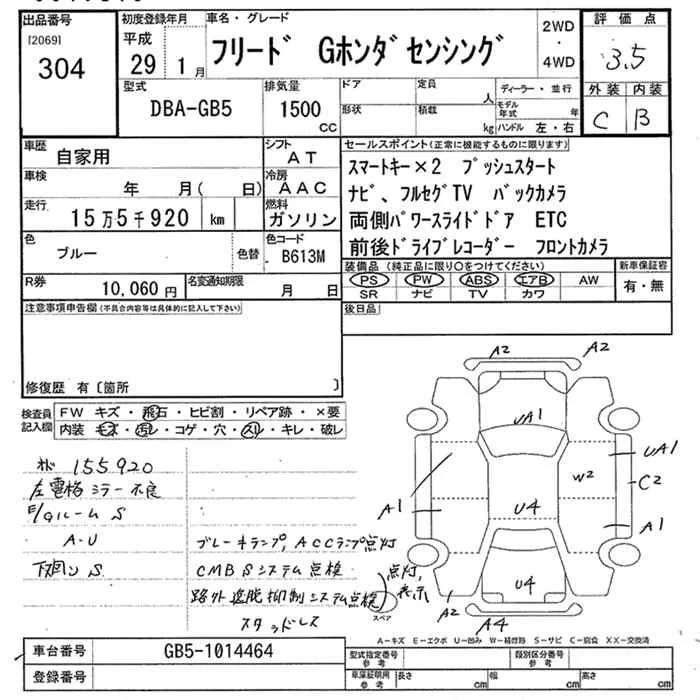 出品番号 初度登録年月 車名・グレード 評価点
[2069] 平成 2WD
304 29 1月 フリード Gホンダセンシング ・ 3.5
4WD
型式 排気量 ドア 定員 人 ディーラー・並行 外装 内装
DBA-GB5 1500 cc 形状 積載 kg モデル年式 年 C B
ハンドル 左・右
車歴 自家用 シフト AT セールスポイント(正常に機能するものに限ります)
車検 年 月( 日) 冷房 AAC スマートキー×2 プッシュスタート
走行 15万5千920 km 燃料 ガソリン ナビ、フルセグTV バックカメラ
両側パワースライドドア ETC
色 ブルー 色替 色コード B613M 前後ドライブレコーダー フロントカメラ
R券 10,060円 名変通知期限 月 日 装備品(純正品に限り○をつけてください) 新車保証書
PS PW ABS エアB AW 有・無
SR ナビ TV カワ
注意事項申告欄(不具合内容等は具体的に記入して下さい) 後日品
修復歴 有〔箇所 〕
検査員記入欄 FW キズ・飛石・ヒビ割・リペア跡・×要
内装 キズ・汚レ・コゲ・穴・スレ・キレ・破レ
A2 A2
UA1
UA1
W2 C2
A1 U4 A1
U4
A2 A4
スペア
155920
左電格ミラー不良
E/Gルーム S
A・U ブレーキランプ, ACCランプ点灯
下回り S CMBSシステム点検 点灯,
路外逸脱抑制システム点検 表示
スタッドレス
A-キズ E-エクボ U-凹み W-補修跡 S-サビ C-腐食 XX-交換済
車台番号 GB5-1014464 型式指定番号 参考 類別区分番号 参考
登録番号 車庫証明用 参考 長さ cm 幅 cm 高さ cm